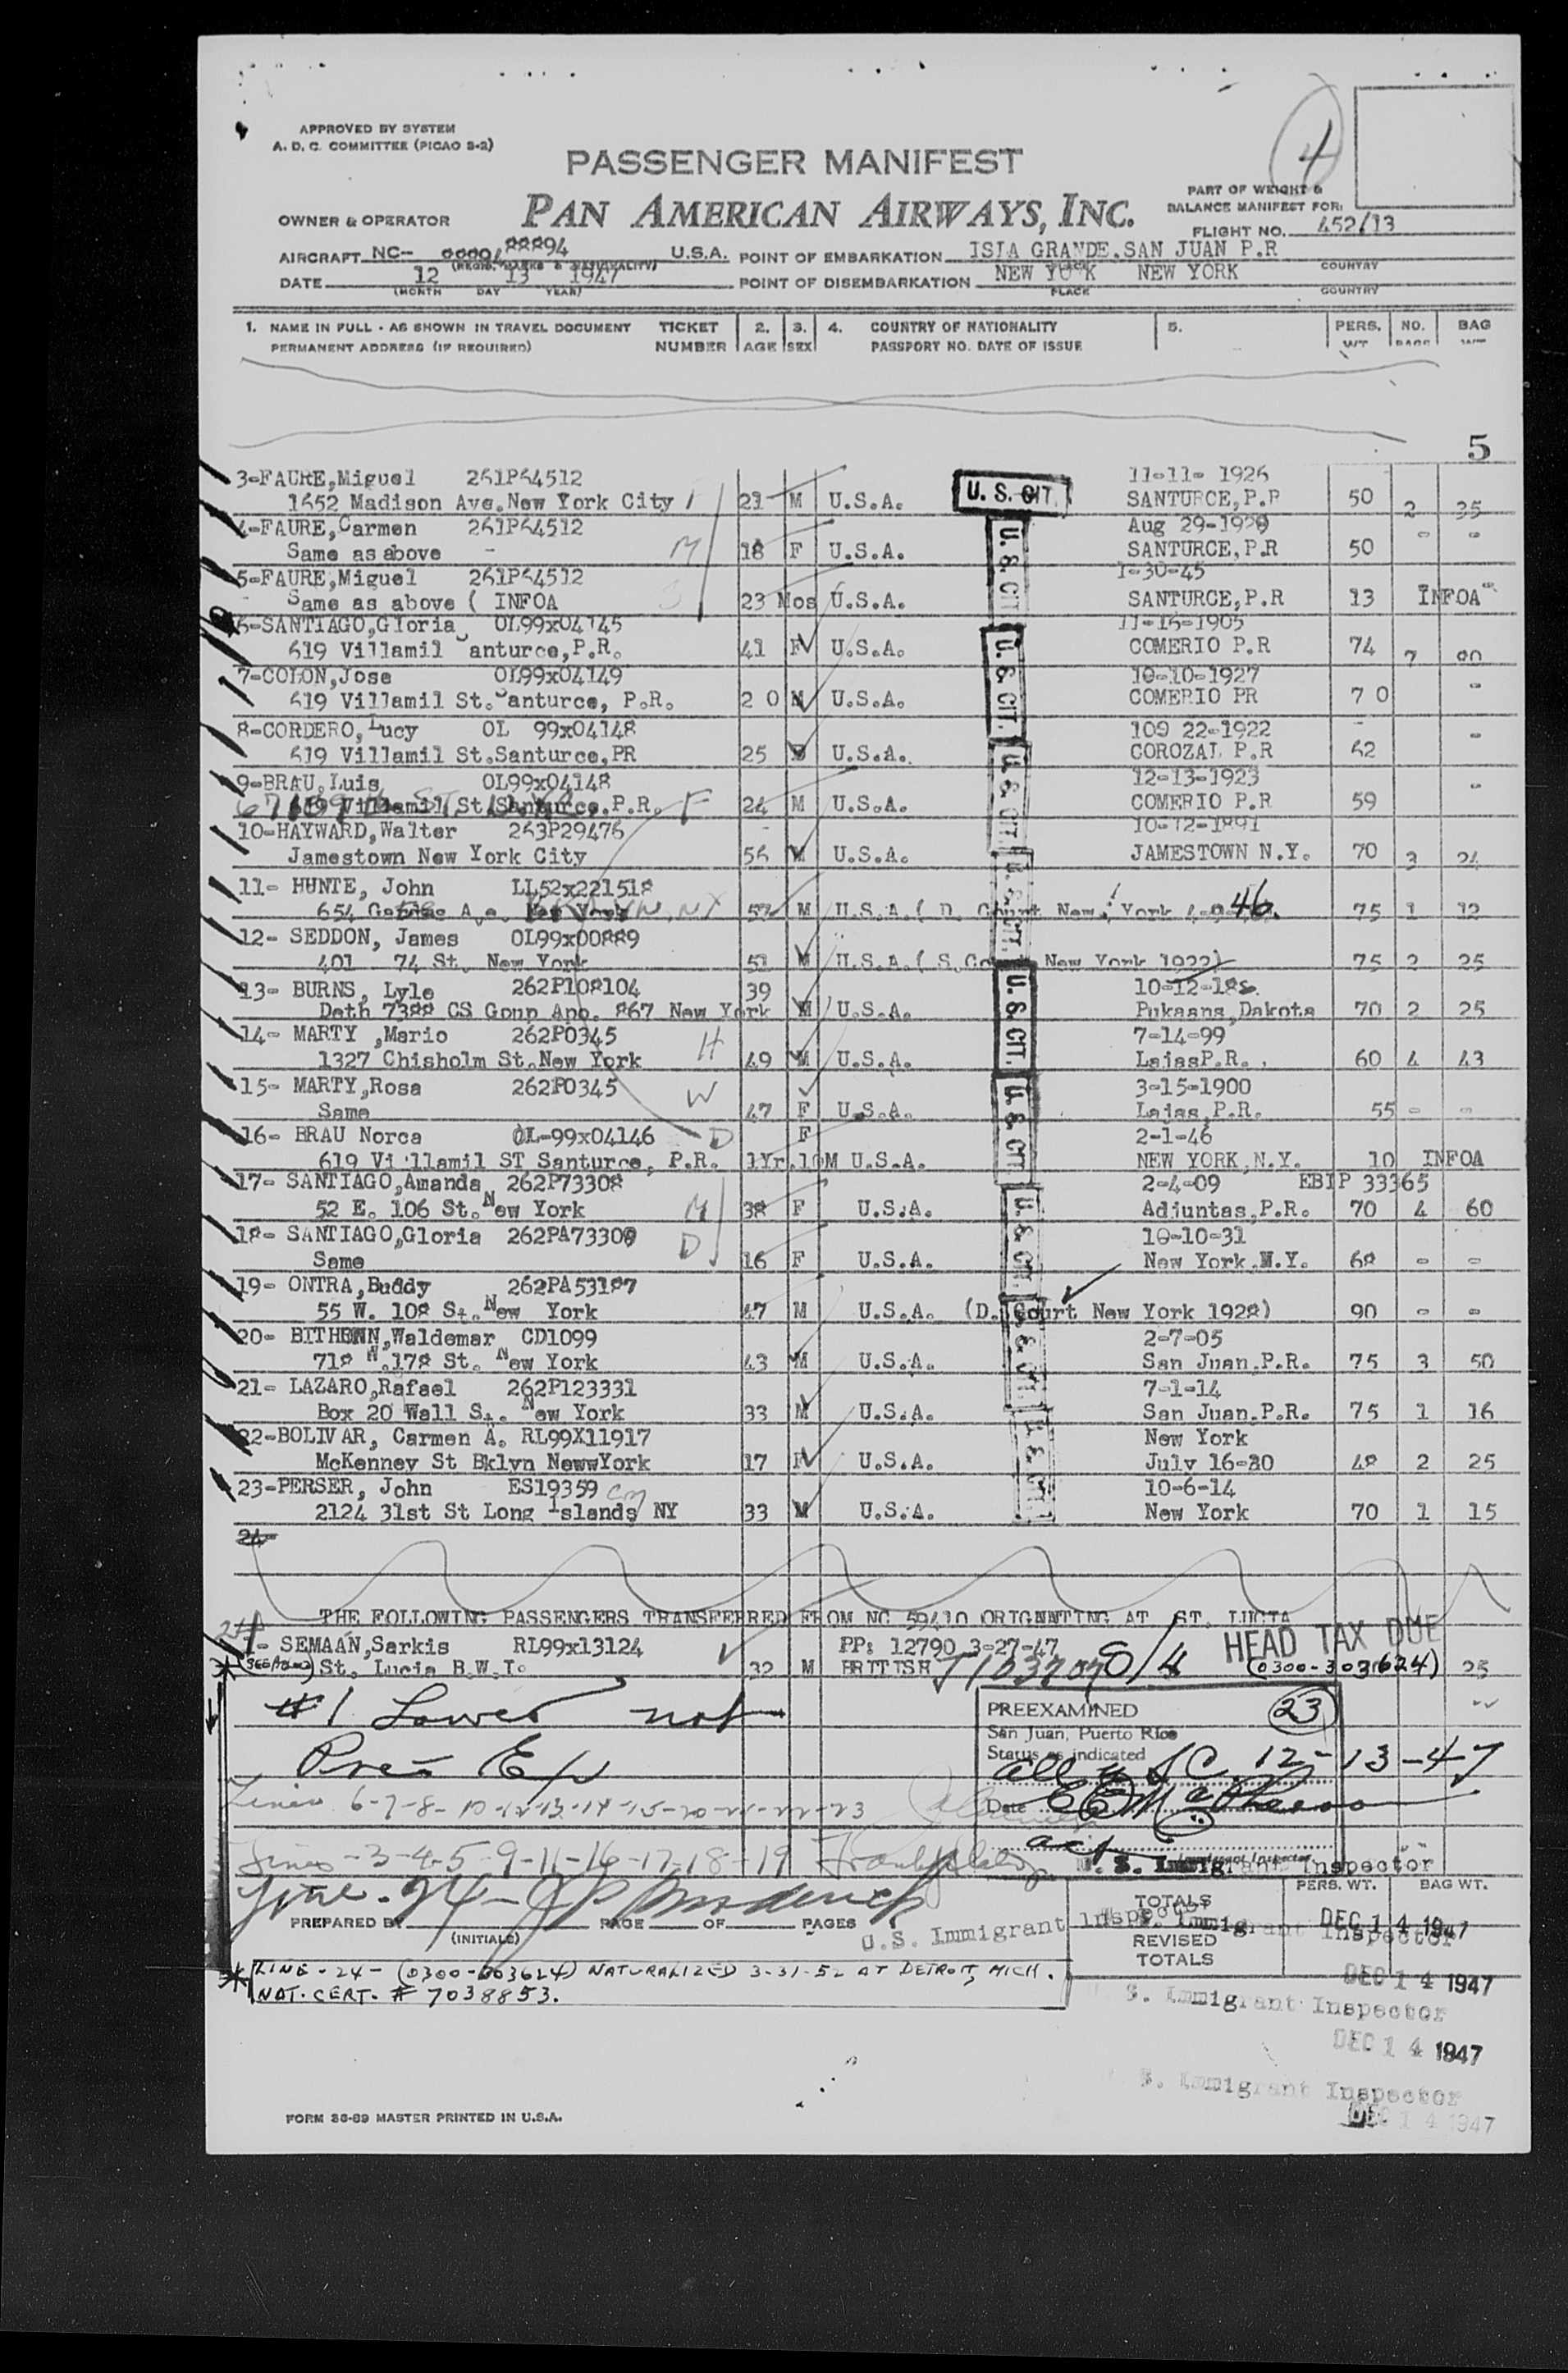 APPROVED BY SYSTEM
A. D. C. COMMITTEE (PICAO S-2)
4
PASSENGER MANIFEST
PAN AMERICAN AIRWAYS, INC.
OWNER & OPERATOR
PART OF WEIGHT &
BALANCE MANIFEST FOR:
FLIGHT NO. 452/13
AIRCRAFT NC-- 88894 U.S.A. POINT OF EMBARKATION ISLA GRANDE.SAN JUAN P.R
(REGIS. MARKS & NATIONALITY) PLACE COUNTRY
DATE 12 13 1947 POINT OF DISEMBARKATION NEW YORK NEW YORK
(MONTH DAY YEAR) PLACE COUNTRY
1. NAME IN FULL - AS SHOWN IN TRAVEL DOCUMENT TICKET 2. 3. 4. COUNTRY OF NATIONALITY 5. PERS. NO. BAG
PERMANENT ADDRESS (IF REQUIRED) NUMBER AGE SEX PASSPORT NO. DATE OF ISSUE WT BAGS WT
5
3-FAURE,Miguel 261P64512 11-11- 1926
1652 Madison Ave.New York City 21 M U.S.A. U. S. CIT. SANTURCE,P.R 50 2 35
4-FAURE,Carmen 261P64512 Aug 29-1929
Same as above - M 18 F U.S.A. U. S. CIT. SANTURCE,P.R 50 - -
5-FAURE,Miguel 261P64512 1-30-45
Same as above ( INFOA S 23 Mos U.S.A. SANTURCE,P.R 13 INFOA
6-SANTIAGO,Gloria OL99x04145 11-16-1905
619 Villamil Santurce,P.R. 41 F U.S.A. U. S. CIT. COMERIO P.R 74 7 90
7-COLON,Jose OL99x04149 10-10-1927
619 Villamil St.Santurce, P.R. 2 0 M U.S.A. COMERIO PR 7 0 -
8-CORDERO,Lucy OL 99x04148 109 22-1922
619 Villamil St.Santurce,PR 25 U.S.A. U. S. CIT. COROZAL P.R 62 -
9-BRAU,Luis OL99x04148 12-13-1923
619 Villamil St.Santurce,P.R. F 24 M U.S.A. COMERIO P.R 59 -
10-HAYWARD,Walter 263P29476 10-12-1891
Jamestown New York City 56 M U.S.A. U. S. CIT. JAMESTOWN N.Y. 70 3 24
11- HUNTE, John LL52x221518
654 Ave. New York BKLYN, NY 57 M U.S.A.( D. Court New York 4-9-46. 75 1 12
12- SEDDON, James OL99x00889
401 74 St. New York 51 M U.S.A.( S.Court New York 1922) 75 2 25
13- BURNS, Lyle 262P108104 39 10-12-
Deth 7388 CS Goup Apo. 867 New York M U.S.A. U. S. CIT. Pukaana,Dakota 70 2 25
14- MARTY ,Mario 262P0345 7-14-99
1327 Chisholm St.New York H 49 M U.S.A. LajasP.R.. 60 4 43
15- MARTY,Rosa 262P0345 3-15-1900
Same W 47 F U.S.A. U. S. CIT. Lajas,P.R. 55 - -
16- BRAU Norca OL-99x04146 D F 2-1-46
619 Vi'llamil ST Santurce, P.R. 1Yr.10M U.S.A. NEW YORK,N.Y. 10 INFOA
17- SANTIAGO,Amanda 262P73308 2-4-09 EBIP 33365
52 E. 106 St.New York M 38 F U.S.A. U. S. CIT. Adjuntas,P.R. 70 4 60
18- SANTIAGO,Gloria 262PA73309 D 10-10-31
Same 16 F U.S.A. New York.N.Y. 68 - -
19- ONTRA,Buddy 262PA53187
55 W. 108 St.New York 47 M U.S.A. (D. Court New York 1928) 90 - -
20- BITHORN,Waldemar CD1099 2-7-05
718 W.178 St. New York 43 M U.S.A. U. S. CIT. San Juan,P.R. 75 3 50
21- LAZARO,Rafael 262P123331 7-1-14
Box 20 Wall St. New York 33 M U.S.A. San Juan,P.R. 75 1 16
22-BOLIVAR, Carmen A. RL99X11917 New York
McKenney St Bklyn NewwYork 17 F U.S.A. U. S. CIT. July 16-30 48 2 25
23-PERSER, John ES19359 10-6-14
2124 31st St Long Islands NY 33 M U.S.A. New York 70 1 15
24-
THE FOLLOWING PASSENGERS TRANSFERRED FROM NC 59410 ORIGNNTING AT ST. LUCIA
1- SEMAAN,Sarkis RL99x13124 PP: 12790 3-27-47 HEAD TAX DUE
St. Lucia B.W.I. 32 M BRITISH (0300-303624) 25
#1 Lower not
Pre-Ex
PREEXAMINED 23
San Juan, Puerto Rico
Status as indicated
all USC 12-13-47
Date
Lines 6-7-8-10-12-13-14-15-20-21-22-23
act
Immigrant Inspector
Lines -3-4-5-9-11-16-17-18-19
U. S. Immigrant Inspector
Line - 24 -
PERS. WT. BAG WT.
TOTALS
REVISED
TOTALS
PREPARED BY PAGE OF PAGES
(INITIALS)
U.S. Immigrant Inspector
DEC 14 1947
* LINE - 24 - (0300-303624) NATURALIZED 3-31-52 AT DETROIT, MICH.
NAT. CERT. # 7038853.
DEC 14 1947
S. Immigrant Inspector
DEC 14 1947
S. Immigrant Inspector
DEC 14 1947
FORM 36-69 MASTER PRINTED IN U.S.A.